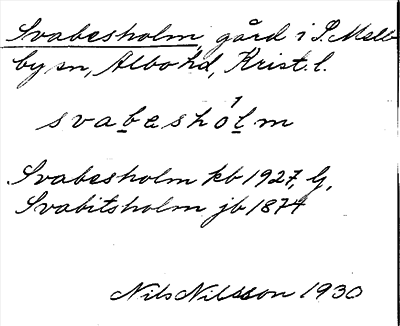 Svabesholm, gård i S. Mell-
by sn, Albo hd, Krist. l.
svabeshólm
Svabesholm kb 1927, G,
Svabitsholm jb 1874
Nils Nilsson 1930